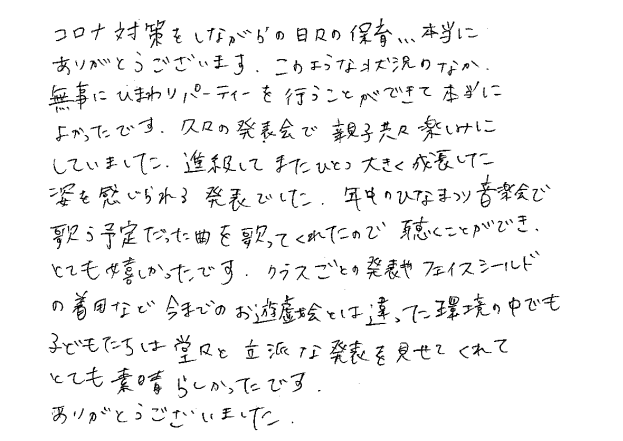 コロナ対策をしながらの日々の保育...本当に
ありがとうございます。このような状況のなか、
無事にひまわりパーティーを行うことができて本当に
よかったです。久々の発表会で親子共々楽しみに
していました。進級してまたひとつ大きく成長した
姿を感じられる発表でした。年中のひなまつり音楽会で
歌う予定だった曲を歌ってくれたので聴くことができ、
とても嬉しかったです。クラスごとの発表やフェイスシールド
の着用など今までのお遊戯会とは違った環境の中でも
子どもたちは堂々と立派な発表を見せてくれて
とても素晴らしかったです。
ありがとうございました。